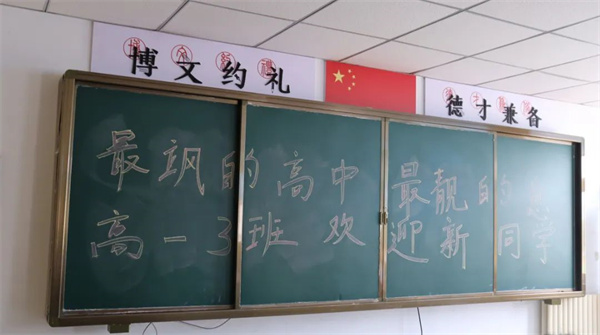 博文约礼
德才兼备
最飒的高中 最靓的
高一3班 欢迎新同学